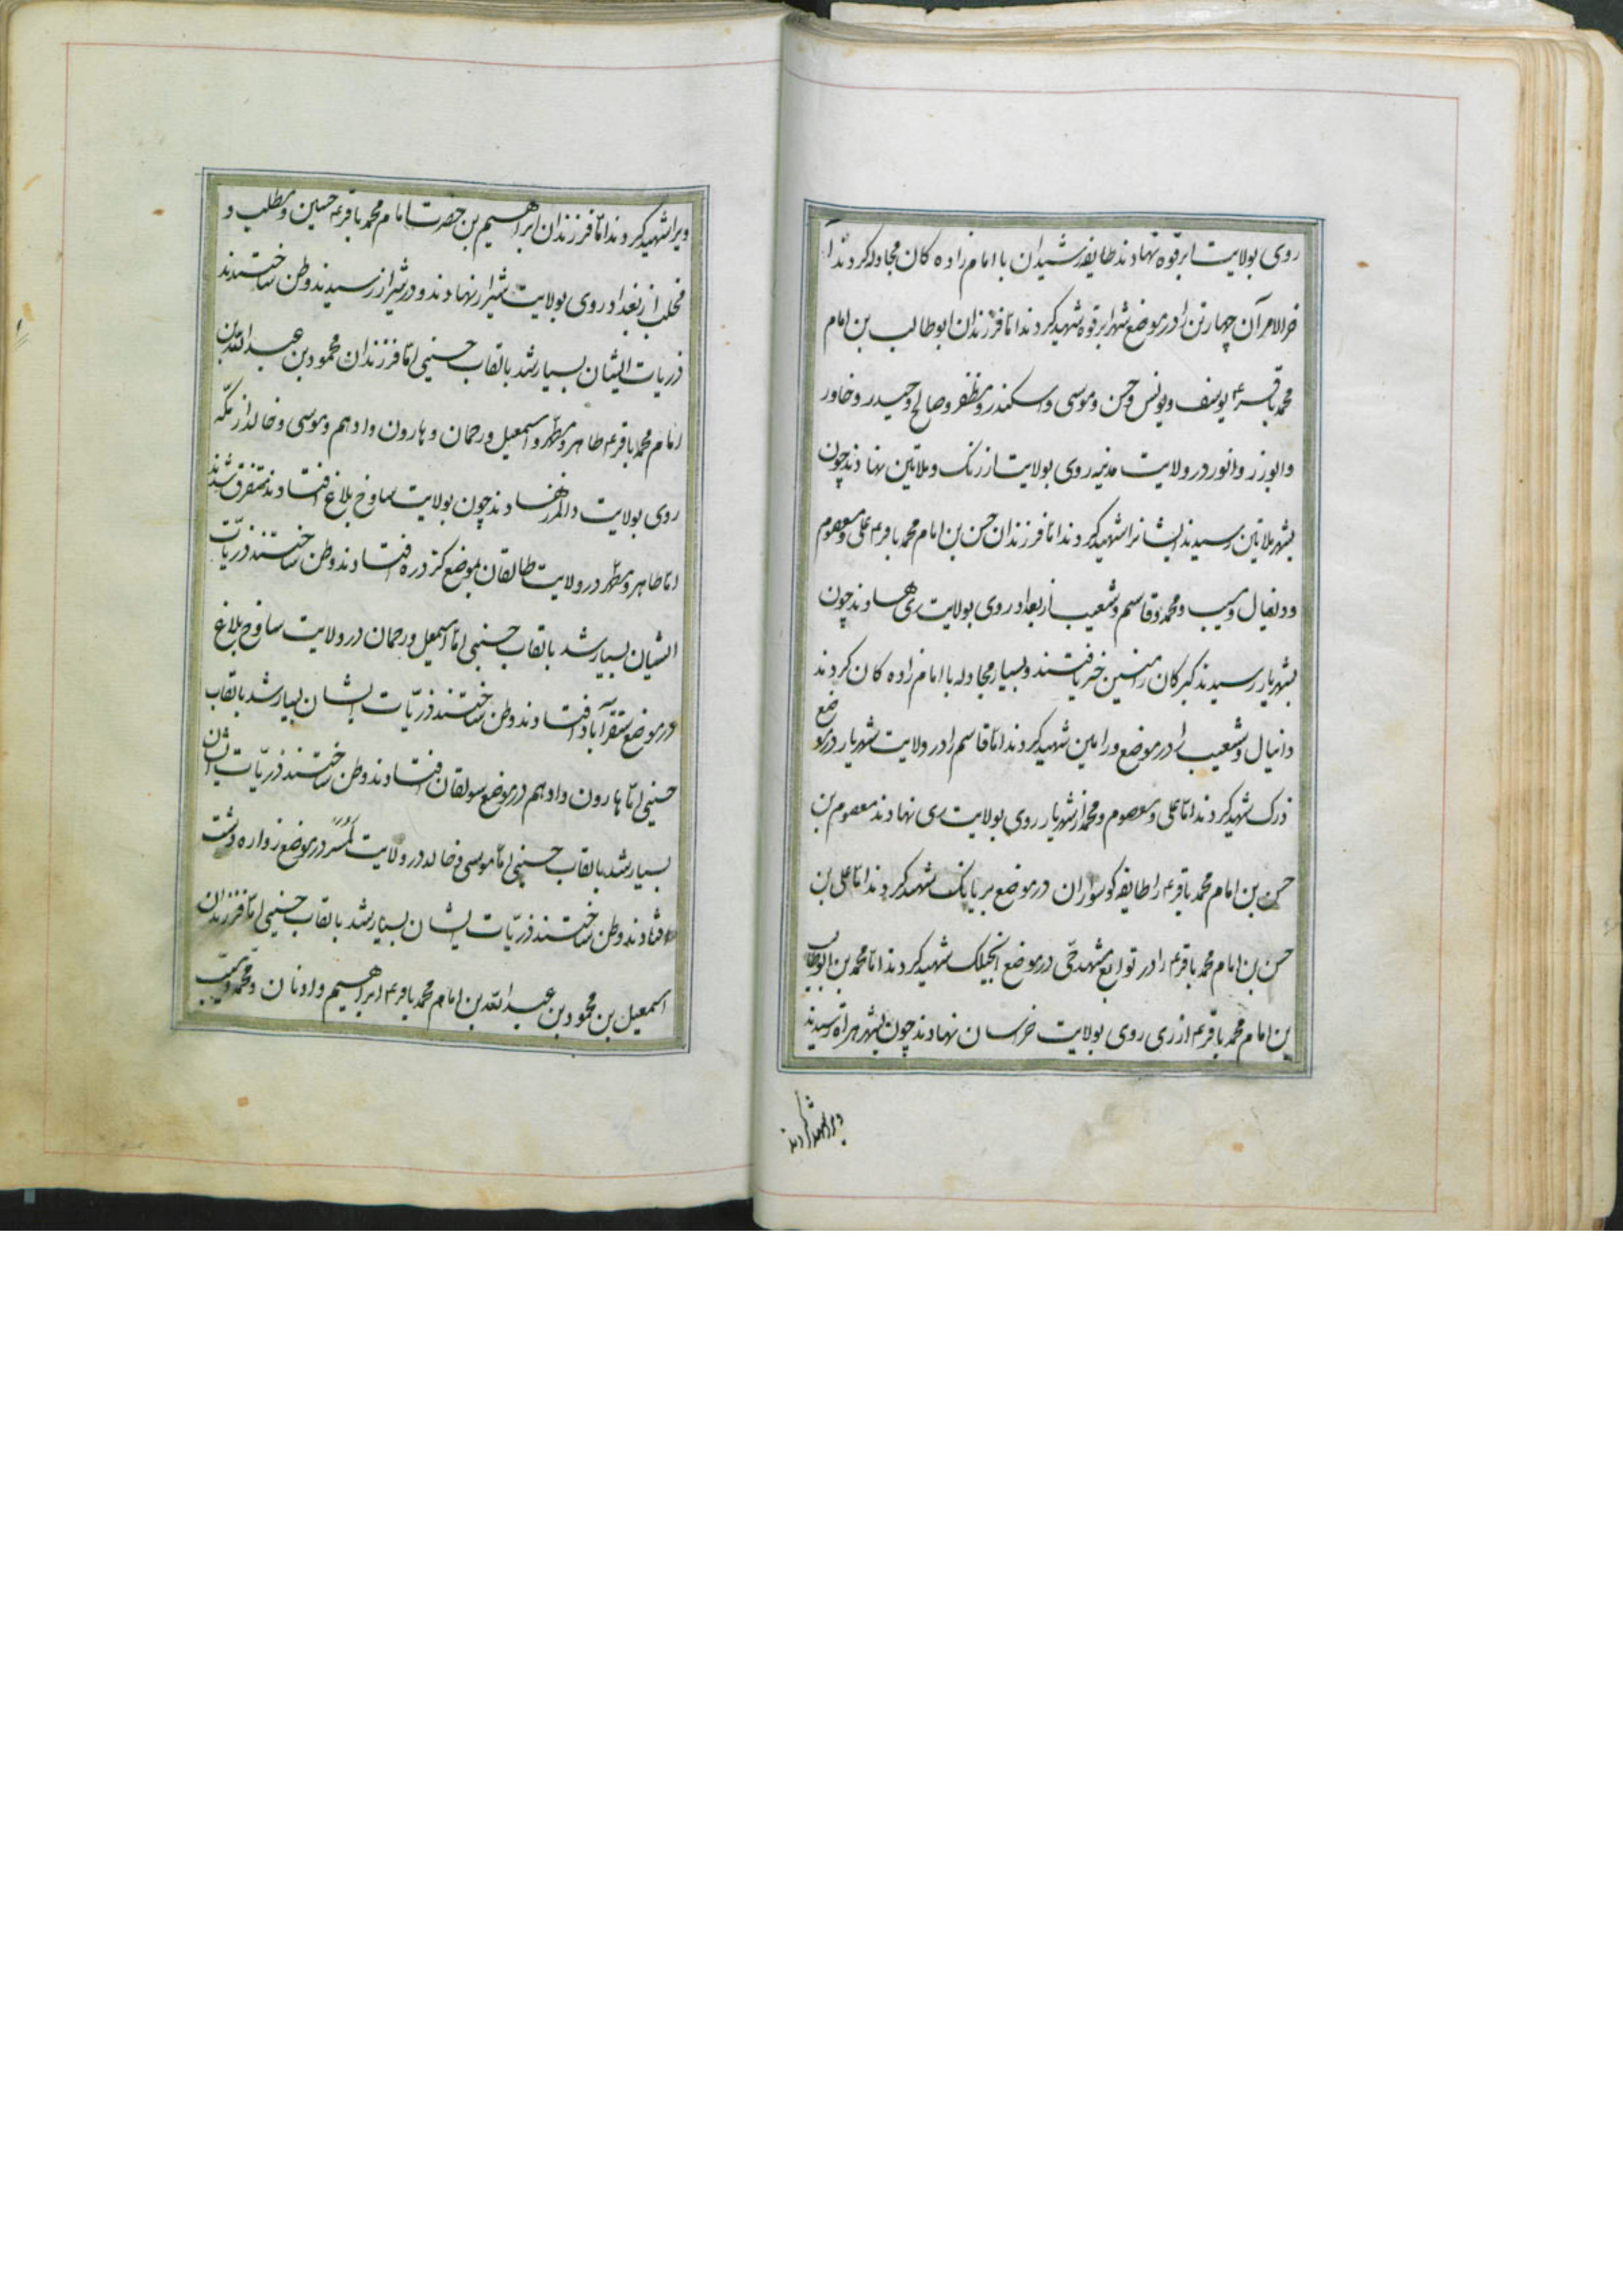 روی بولایت ابرقوه نهادند طایفه رشیدان با امام زاده کان مجادله کردند تا
خرالامر آن چهار تن را در موضع شهر ابرقوه شهید کردند امّا فرزندان ابوطالب بن امام
محمد باقر ع یوسف و یونس و حسن و موسی و اسکندر و مظفر و صالح و حیدر و خاور
وابوزر وانور در ولایت مدنیه روی بولایت ازرنک و ملاتین نهادند چون
بشهر ملاتین رسیدند ایشانرا شهید کردند امّا فرزندان حسن بن امام محمد باقر ع علی و معصوم
ودنفال و محمد و قاسم و شعیب از بغداد روی بولایت ری نهادند چون
بشهریار رسیدند کبرکان رامنین خبر یافتند و بسیار مجادله با امام زاده کان کردند
دانیال و شعیب را در موضع ورامین شهید کردند امّا قاسم را در ولایت شهریار در موضع
ذرک شهید کردند امّا علی و معصوم و محمد از شهریار روی بولایت ری نهادند معصوم بن
حسن بن امام محمد باقر ع را طایفه کوسواران در موضع بریانک شهید کردند امّا علی بن
حسن بن امام محمد باقر ع را در توابع مشهد در موضع انجیلک شهید کردند امّا محمد بن ابوطالب
بن امام محمد باقر ع از ری روی بولایت خراسان نهادند چون بشهر هراة رسیدند
ویرا شهید کردند
ویرا شهید کردند امّا فرزندان ابراهیم بن حضرت امام محمد باقر ع حسین و مطلب و
مخلب از بغداد روی بولایت شیراز نهادند و در شیراز رسیدند وطن ساختندند
ذریات ایشان بسیار شد بالقاب حسینی امّا فرزندان محمود بن عبدالله بن
امام محمد باقر ع طاهر و مطهر و اسمعیل و رحمان و هارون و ادهم و موسی و خالد از مکّه
روی بولایت دالمرز نهادند چون بولایت ساوخ بلاغ افتادند متفرق شدند
امّا طاهر و مطهر در ولایت طالقان بموضع کتر دره افتادند وطن ساختند ذریّات
ایشان بسیار شد بالقاب حسینی امّا اسمعیل و رحمان در ولایت ساوخ بلاغ
در موضع سنقرآباد افتادند وطن ساختند ذریّات ایشان بسیار شد بالقاب
حسینی امّا هارون و ادهم در موضع سولقان افتادند وطن ساختند ذریّات ایشان
بسیار شد بالقاب حسینی امّا موسی و خالد در ولایت لمسر در موضع زواره دشت
افتادند وطن ساختند ذریّات ایشان بسیار شد بالقاب حسینی امّا فرزندان
اسمعیل بن محمود بن عبدالله بن امام محمد باقر ع ابراهیم و ادنان و محمد و